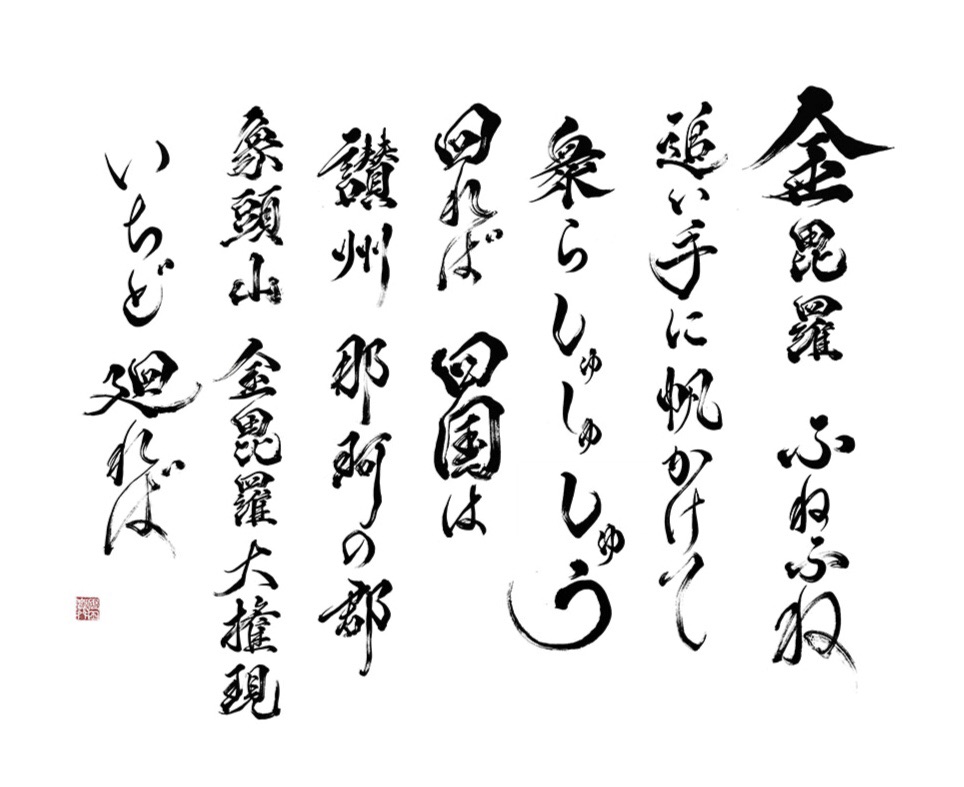 金毘羅 ふねふね
追い手に帆かけて
衆らしゅしゅしゅう
回れば 四国は
讃州 那珂の郡
象頭山 金毘羅大権現
いちど 廻れば